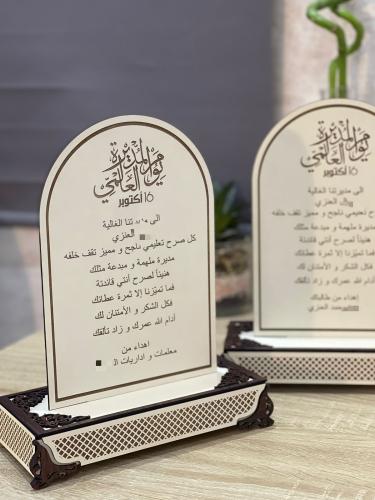 يوم المديرة
العالمي
16 أكتوبر
الى مديرتنا الغالية
العنزي
كل صرح تعليمي ناجح و مميز تقف خلفه
مديرة ملهمة و مبدعة مثلك
هنيئاً لصرح أنتي قائدتة
فما تميّزنا إلا ثمرة عطائك
فكل الشكر و الأمتنان لك
أدام الله عمرك و زاد تألقك
اهداء من
معلمات و اداريات الـ
يوم المديرة
العالمي
16 أكتوبر
الى مديرتنا الغالية
العنزي
كل صرح تعليمي ناجح و مميز تقف خلفه
مديرة ملهمة و مبدعة مثلك
هنيئاً لصرح أنتي قائدتة
فما تميّزنا إلا ثمرة عطائك
فكل الشكر و الأمتنان لك
أدام الله عمرك و زاد تألقك
اهداء من طالباتك
العنزي